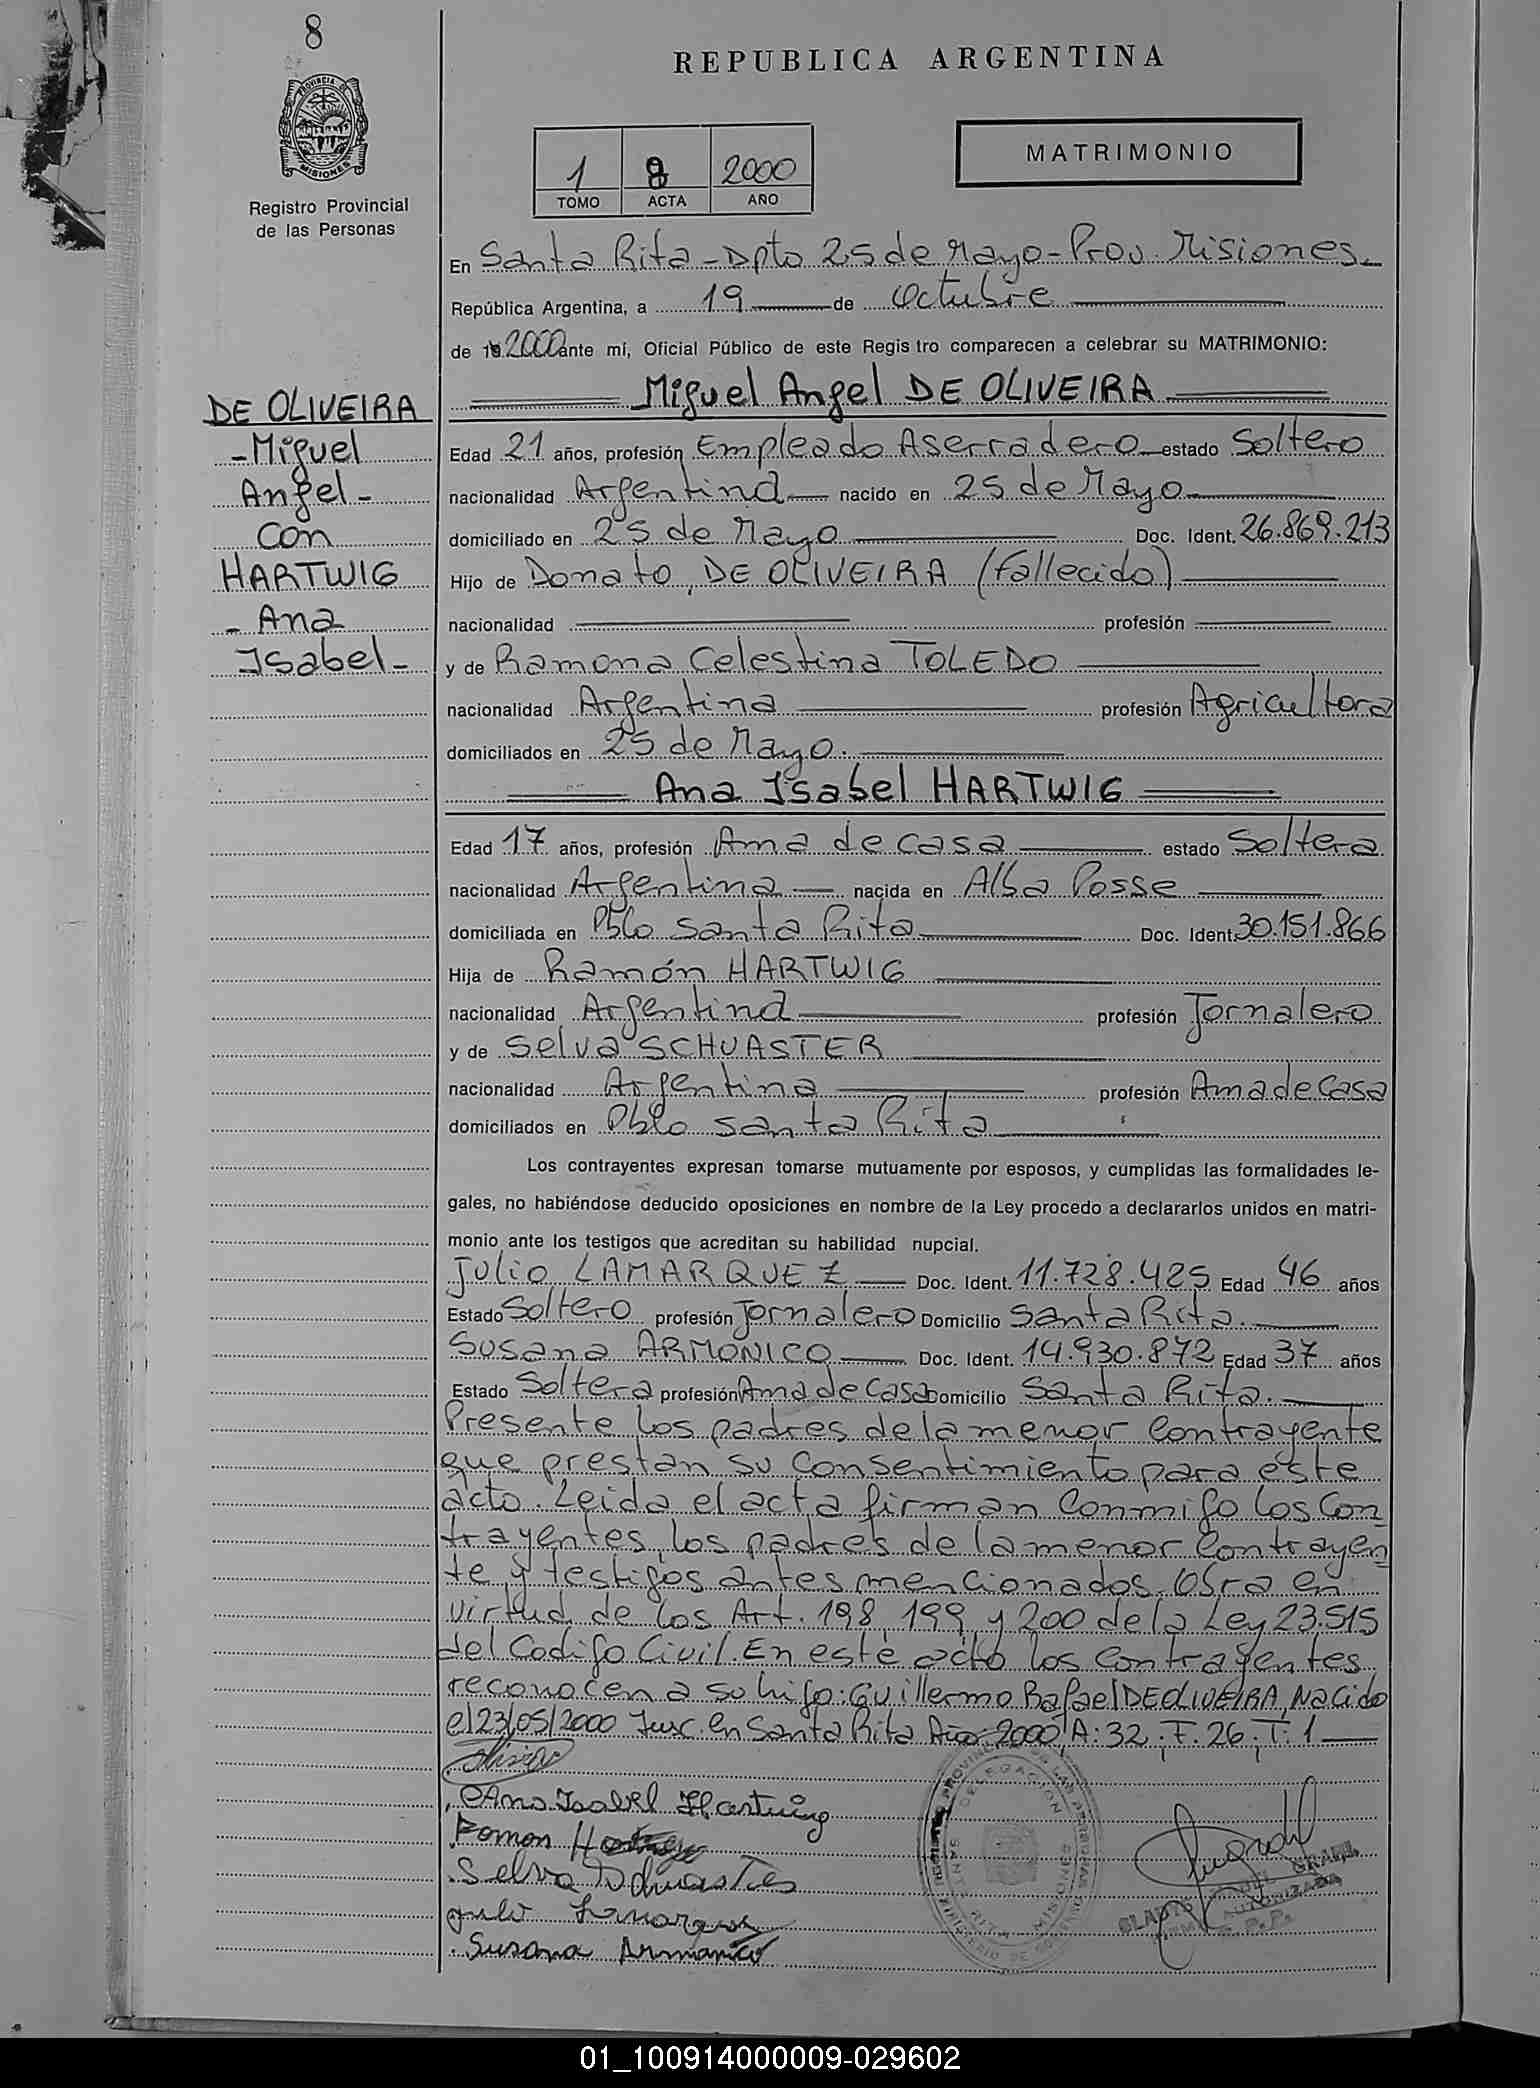 8
PROVINCIA DE
MISIONES
Registro Provincial
de las Personas
REPUBLICA ARGENTINA
1 8 2000
TOMO ACTA AÑO
MATRIMONIO
En Santa Rita - Dpto 25 de Mayo - Prov. Misiones
República Argentina, a 19 de Octubre
de 19 2000 ante mí, Oficial Público de este Regis tro comparecen a celebrar su MATRIMONIO:
DE OLIVEIRA
- Miguel
Angel -
Con
HARTWIG
- Ana
Isabel -
Miguel Angel DE OLIVEIRA
Edad 21 años, profesión Empleado Aserradero estado Soltero
nacionalidad Argentina nacido en 25 de Mayo
domiciliado en 25 de Mayo Doc. Ident. 26.869.213
Hijo de Donato DE OLIVEIRA (Fallecido)
nacionalidad profesión
y de Ramona Celestina TOLEDO
nacionalidad Argentina profesión Agricultora
domiciliados en 25 de Mayo.
Ana Isabel HARTWIG
Edad 17 años, profesión Ama de casa estado Soltera
nacionalidad Argentina nacida en Alba Posse
domiciliada en Pblo Santa Rita Doc. Ident. 30.151.866
Hija de Ramón HARTWIG
nacionalidad Argentina profesión Jornalero
y de Selva SCHUASTER
nacionalidad Argentina profesión Ama de Casa
domiciliados en Pblo Santa Rita
Los contrayentes expresan tomarse mutuamente por esposos, y cumplidas las formalidades le-
gales, no habiéndose deducido oposiciones en nombre de la Ley procedo a declararlos unidos en matri-
monio ante los testigos que acreditan su habilidad nupcial.
Julio LAMARQUEZ Doc. Ident. 11.728.425 Edad 46 años
Estado Soltero profesión Jornalero Domicilio Santa Rita.
Susana ARMONICO Doc. Ident. 14.930.872 Edad 37 años
Estado Soltera profesión Ama de Casa Domicilio Santa Rita.
Presente los padres de la menor Contrayente
que prestan su Consentimiento para este
acto. Leida el acta firman Conmigo los Con
trayentes, los padres de la menor Contrayen
te y testigos antes mencionados. Obra en
virtud de los Art. 198, 199 y 200 de la Ley 23.515
del Codigo Civil. En este acto los Contrayentes
reconocen a su hijo: Guillermo Rafael DE OLIVEIRA, Nacido
el 23/05/2000 Insc. en Santa Rita Año: 2000 A: 32; F. 26; T: 1
Ana Isabel Hartwig
Ramon
Selva
Julio Lamarquez
Susana Armonico
DELEGACION
SANTA RITA
MISIONES
AUTORIZADA
01_100914000009-029602